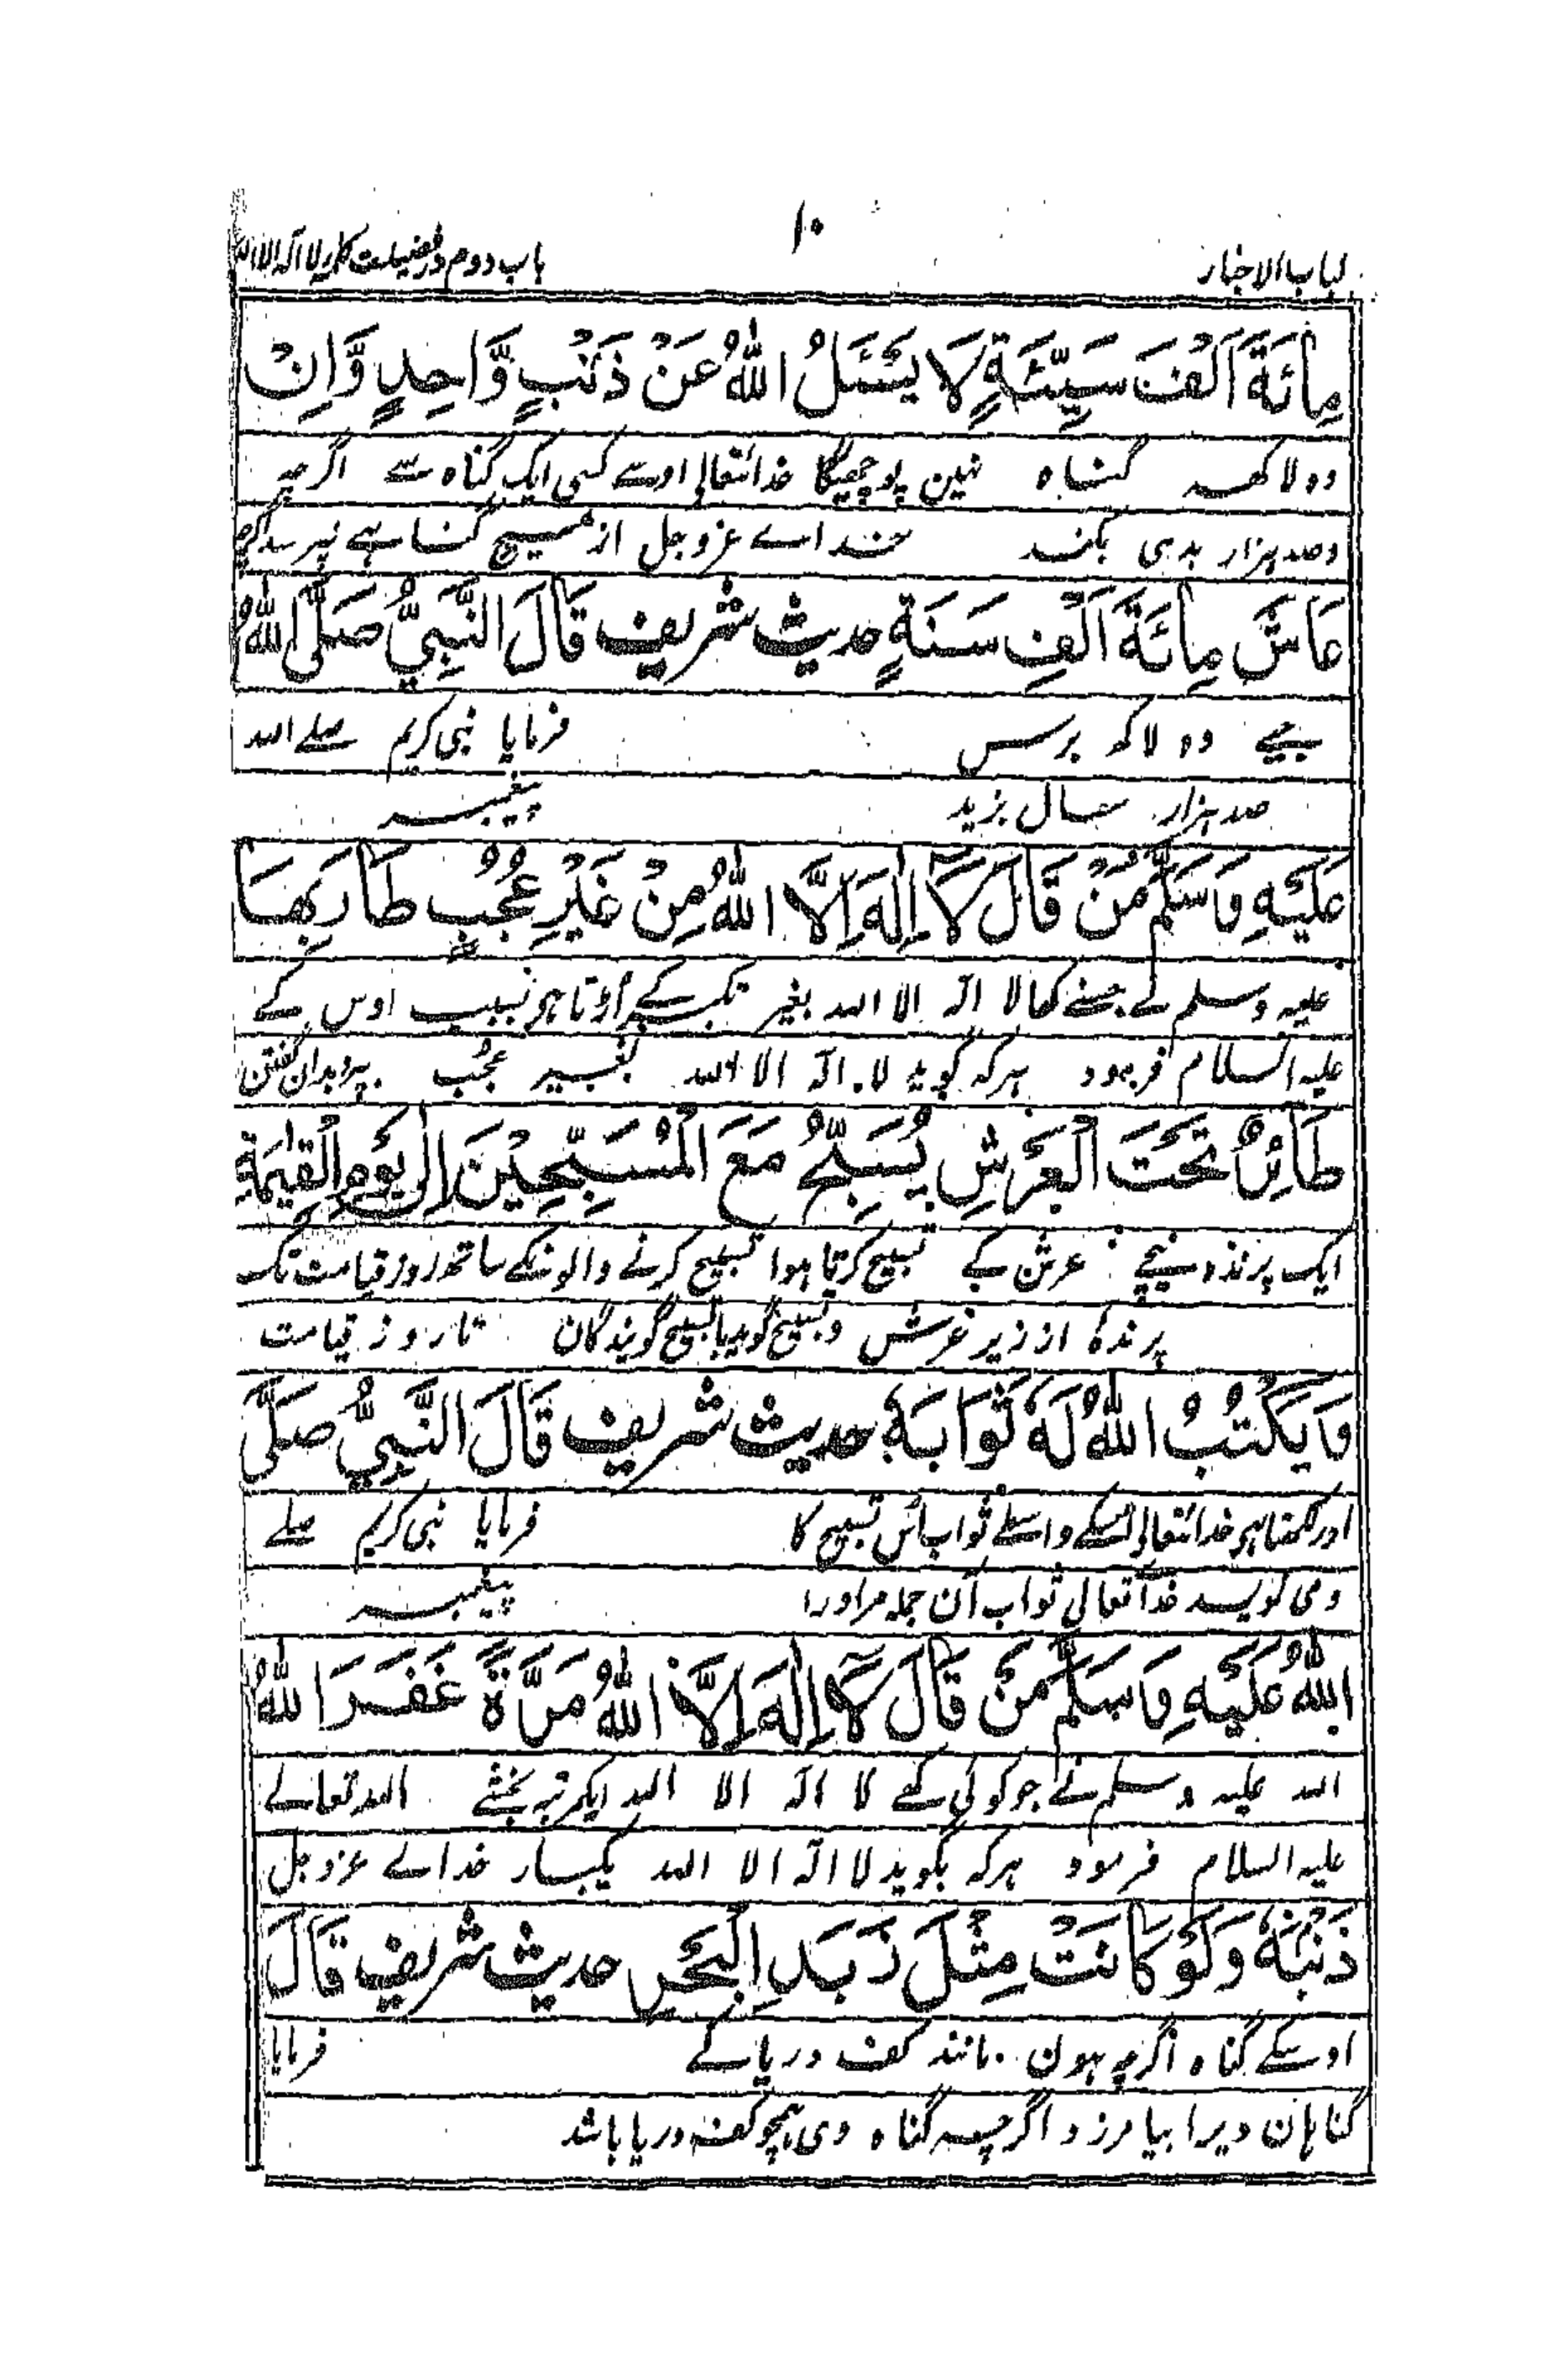 لباب الاخبار
۱۰
باب دوم در فضیلت کلمہ لا الہ الا اللہ
مِائَةَ اَلْفَ سَيِّئَةٍ لَا يَسْئَلُ اللهُ عَنْ ذَنْبٍ وَّاحِدٍ وَّاِنْ
دو لاکھہ گناہ نہین پوچھیگا خدائتعالی اوسے کسی ایک گناہ سے اگرچہ
وصد ہزار بدی بکند خداے عزوجل از ہیچ گناہے نپرسد اگرچہ
عَاشَ مِائَةَ اَلْفِ سَنَةٍ حدیث شریف قَالَ النَّبِيُّ صَلَّى اللهُ
جیے وہ لاکھ برس فرمایا نبی کریم صلے اللہ
صد ہزار سال بزید پیغمبر
عَلَيْهِ وَسَلَّمَ مَنْ قَالَ لَا اِلٰهَ اِلَّا اللهُ مِنْ غَيْرِ عُجُبٍ طَارَ بِهَا
علیہ وسلم نے جسنے کہا لا الہ الا اللہ بغیر تکبر کے اُڑتا ہو بسبب اوس کے
علیہ السلام فرمود ہرکہ گوید لا الہ الا اللہ بغیر عجب بپرد بدان گفتن
طَائِرٌ تَحْتَ الْعَرْشِ يُسَبِّحُ مَعَ الْمُسَبِّحِيْنَ اِلٰى يَوْمِ الْقِيٰمَةِ
ایک پرندہ نیچے عرش کے تسبیح کرتا ہوا تسبیح کرنے والونکے ساتھ روز قیامت تک
پرندہ از زیر عرش وتسبیح گوید با تسبیح گویندگان تا روز قیامت
وَيَكْتُبُ اللهُ لَهٗ ثَوَابَهٗ حدیث شریف قَالَ النَّبِيُّ صَلَّى
اور لکھتا ہو خدائتعالی اسکے واسطے ثواب اُس تسبیح کا فرمایا نبی کریم صلے
ومی نویسد خدا تعالی ثواب آن جملہ مر اورا پیغمبر
اللهُ عَلَيْهِ وَسَلَّمَ مَنْ قَالَ لَا اِلٰهَ اِلَّا اللهُ مَرَّةً غَفَرَ اللهُ
اللہ علیہ وسلم نے جو کوئی کہے لا الہ الا اللہ ایکمرتبہ بخشے اللہ تعالے
علیہ السلام فرمود ہرکہ بگوید لا الہ الا اللہ یکبار خداے عزوجل
ذَنْبَهٗ وَلَوْ كَانَتْ مِثْلَ زَبَدِ الْبَحْرِ حدیث شریف قَالَ
اوسکے گناہ اگرچہ ہون مانند کف دریا کے فرمایا
گناہان ویرا بیامرزد اگرچہ گناہ وی ہمچو کف دریا باشد